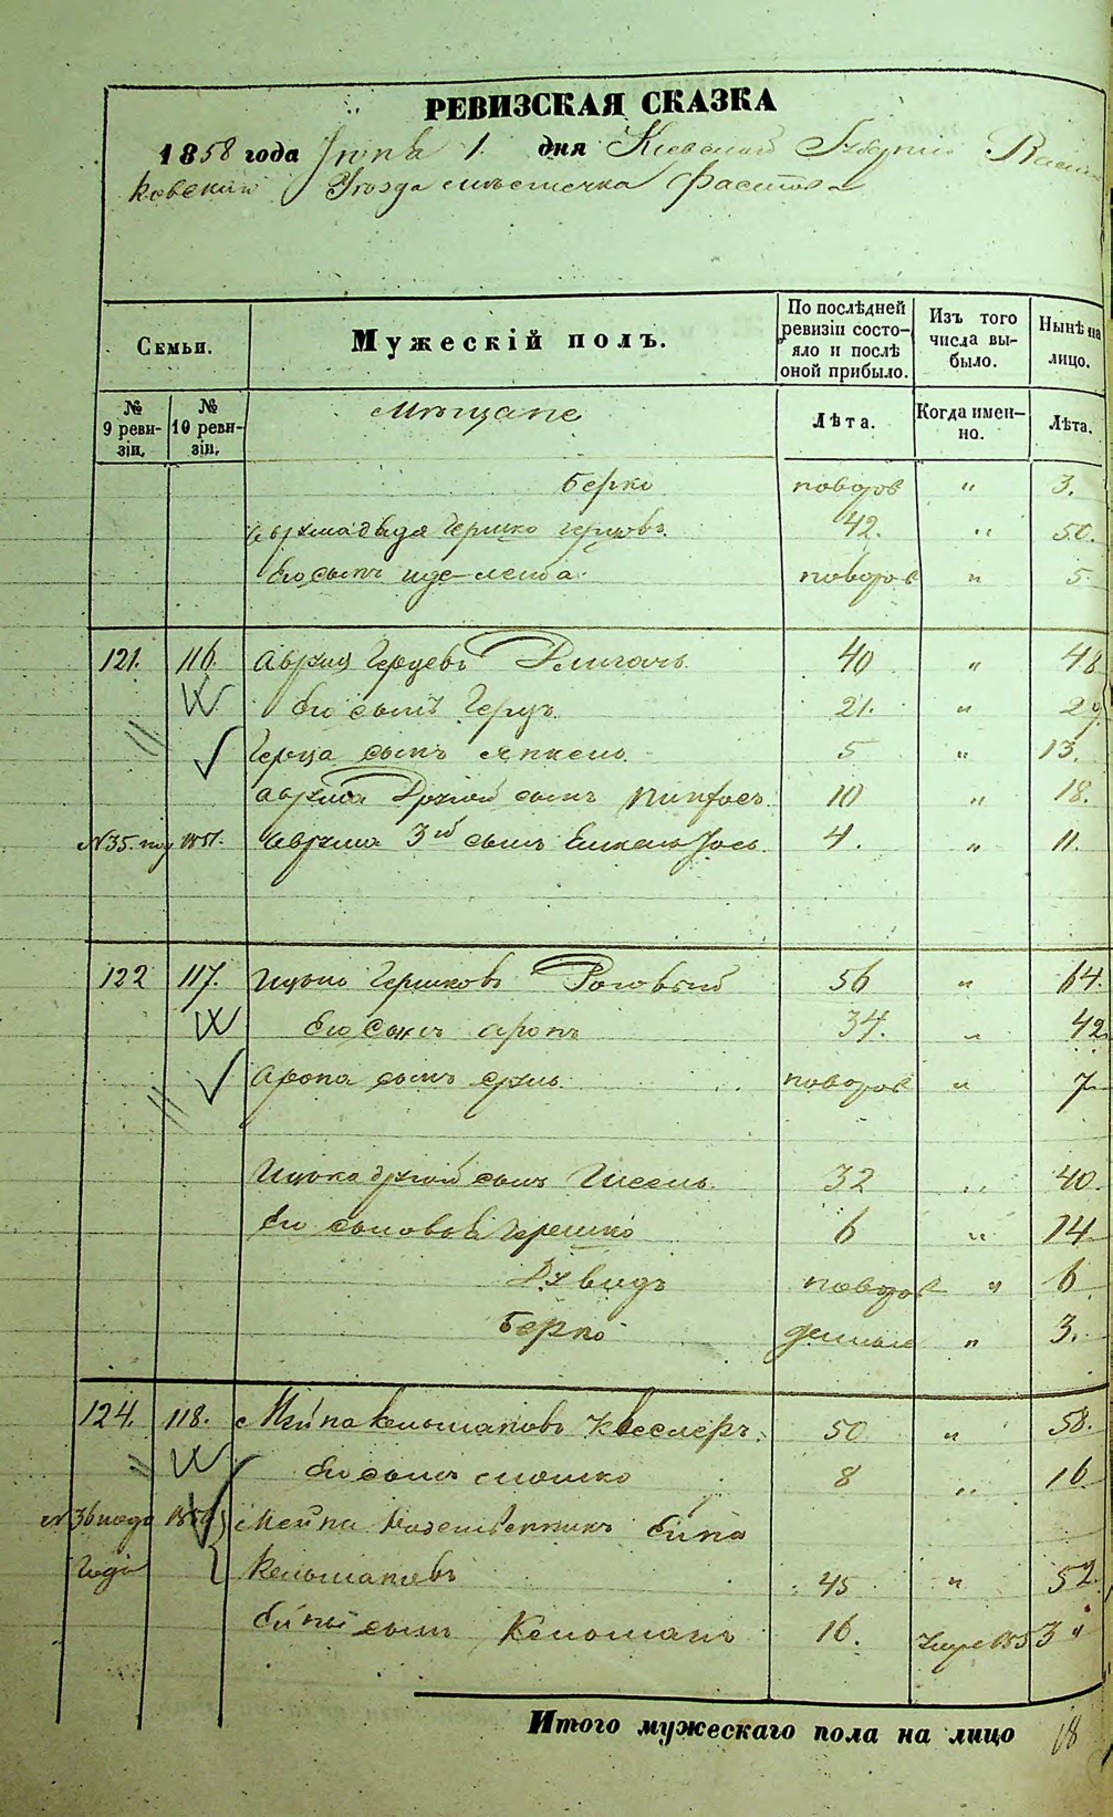 РЕВИЗСКАЯ СКАЗКА
1858 года Іюня 1. дня Кіевской Губерніи Василь
ковскаго Уѣзда мѣстечка Фастова
Семьи.
Мужескій полъ.
По послѣдней ревизіи состо-
яло и послѣ оной прибыло.
Изъ того числа вы-
было.
Нынѣ на лицо.
№ 9 реви-
зіи.
№ 10 реви-
зіи.
Мѣщане
Лѣта.
Когда имен-
но.
Лѣта.
Берко новорож " 3.
Гершко Герцовъ 42. " 50.
Его сынъ Иде-Лейба новорож " 5
121. 116. Аврумъ Герцевъ 40 " 48
Его сынъ Герцъ 21. " 29
Герца сынъ Янкель 5 " 13.
Аврума другой сынъ Пинхосъ 10 " 18.
№35. по 1851. Аврума 3й сынъ 4. " 11.
122 117. Ицько Гершковъ Роговый 56 " 64.
Его сынъ Аронъ 34. " 42
Арона сынъ Сруль новорож " 7
Ицька другой сынъ Иосель 32 " 40.
Его сыновья Гершко 6 " 14
Давидъ новорож " 6
Берко " 3.
124. 118. Кельмановъ 50 " 58.
Его сынъ Мошко 8 " 16
№36 по 185
года
Племянникъ
Кельмановъ 45 " 52.
сынъ Кельманъ 16. Умре 1853 "
Итого мужескаго пола на лицо 18